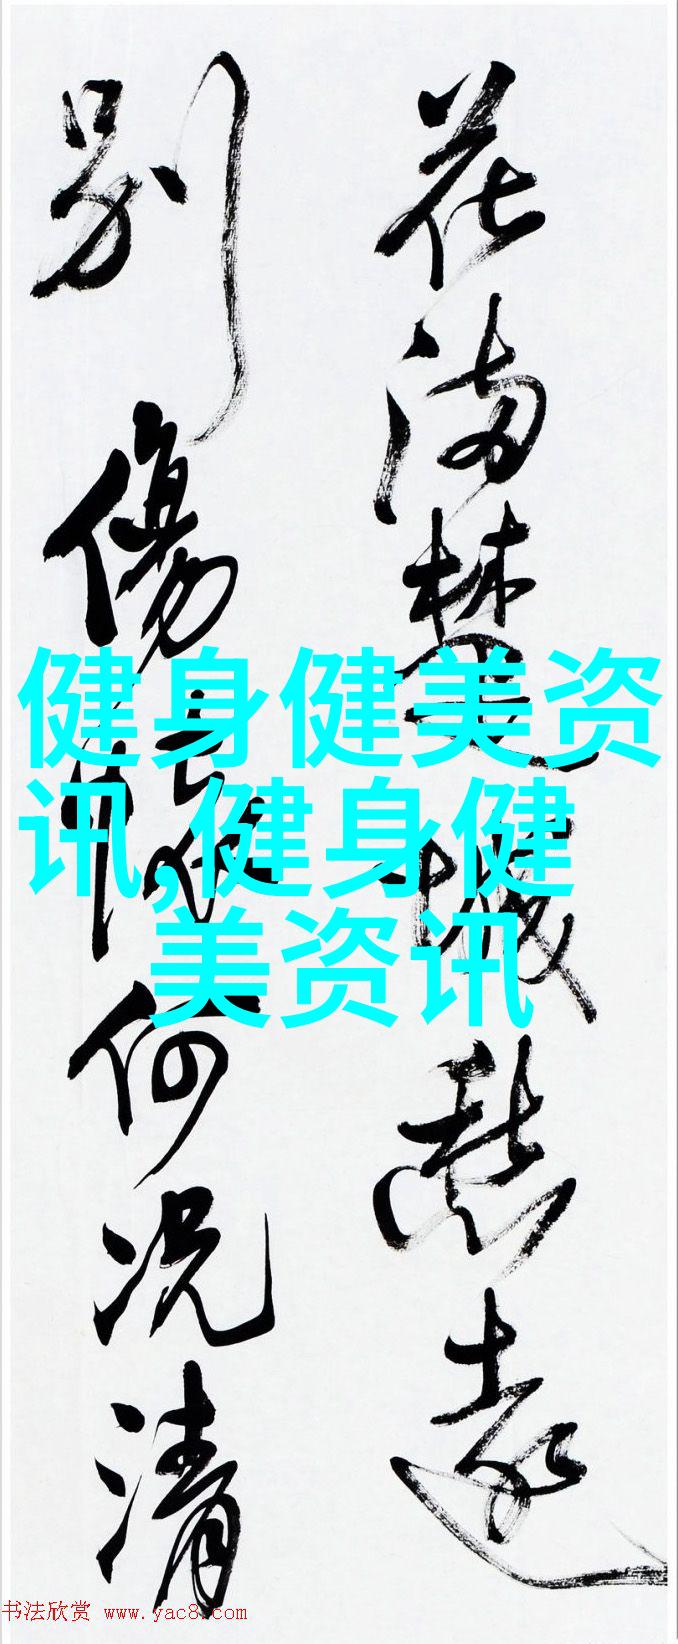 花滿楚城愁遠
別傷何况清
健身健美资
讯,健身健
美资讯
书法欣赏 www.yac8.com